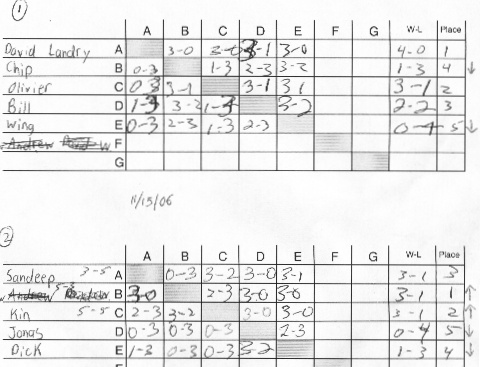 1
A B C D E F G W-L Place
David Landry A 3-0 3-0 3-1 3-0 4-0 1
Chip B 0-3 1-3 2-3 3-2 1-3 4 ↓
Olivier C 0-3 3-1 3-1 3-1 3-1 2
Bill D 1-3 3-2 1-3 3-2 2-2 3
Wing E 0-3 2-3 1-3 2-3 0-4 5 ↓
F
G
11/15/06
2
A B C D E F G W-L Place
Sandeep 3-5 A 0-3 3-2 3-0 3-1 3-1 3
5-3 B 3-0 2-3 3-0 3-0 3-1 1 ↑
Kin 5-5 C 2-3 3-2 3-0 3-0 3-1 2 ↑
Jonas D 0-3 0-3 0-3 2-3 0-4 5 ↓
Dick E 1-3 0-3 0-3 3-2 1-3 4 ↓